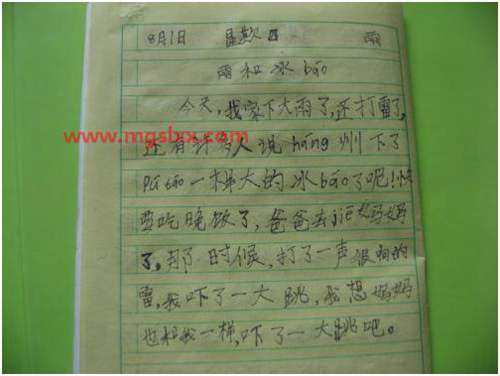 8月1日 星期四 雨
雨和冰báo
今天，我家下大雨了，还打雷了，
www.mgsbxx.com
还有许多人说háng州下了
pú táo一样大的冰báo了呢！快
要吃晚饭了，爸爸去jiē妈妈
了，那时候，打了一声很响的
雷，我吓了一大跳，我想妈妈
也和我一样，吓了一大跳吧。